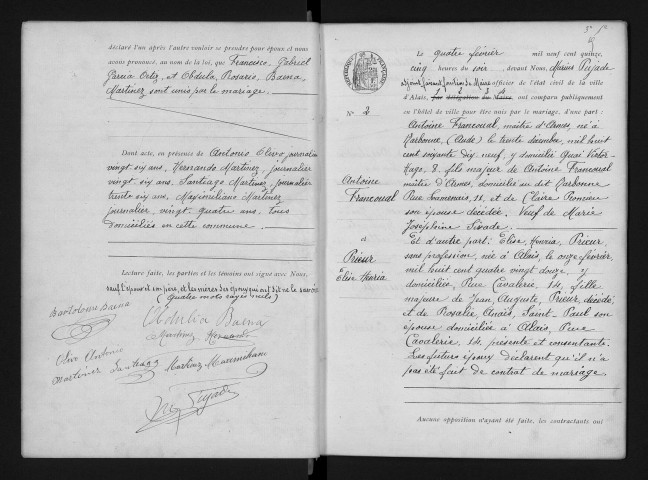 déclaré l'un après l'autre vouloir se prendre pour époux et nous
avons prononcé, au nom de la loi, que Francisco, Gabriel
Garcia Ortiz, et Obdulia, Rosario, Baena
Martinez sont unis par le mariage.
Dont acte, en présence de Antonio Olivo, journalier
vingt-six ans, Hernando Martinez, journalier
vingt-six ans, Santiago Martinez, journalier
trente six ans, Maximiliano Martinez
journalier, vingt-quatre ans, tous
domiciliés en cette commune.
Lecture faite, les parties et les témoins ont signé avec Nous,
sauf l'époux et les mères des époux qui ont dit ne le savoir
(quatre mots rayés nuls)
Bartolome Baena
Obdulia Baena
Martinez Hernando
Olivo Antonio
Martinez Santiago Martinez Maximiliano
Pujade
5
Le quatre février mil neuf cent quinze,
cinq heures du soir, devant Nous, Marius Pujade
adjoint faisant fonction de Maire officier de l'état civil de la ville
d'Alais, par délégation du Maire, ont comparu publiquement
en l'hôtel de ville pour être unis par le mariage, d'une part :
N° 2
Antoine
Francoual
et
Prieur
Elise Henria
Antoine Francoual, maître d'Armes, né à
Narbonne, (Aude) le trente décembre, mil huit
cent soixante dix neuf, y domicilié Quai Victor
Hugo, 8, fils majeur de Antoine Francoual
maître d'Armes, domicilié au dit Narbonne
Rue 11, et de Claire
son épouse décédée. Veuf de Marie
Joséphine Sixade.
Et d'autre part: Elise, Henria, Prieur,
sans profession, née à Alais, le onze février,
mil huit cent quatre vingt douze, y
domiciliée, Rue Cavalerie, 14, fille
majeure de Jean, Auguste, Prieur, décédé
et de Rosalie, Anaïs, Saint-Paul son
épouse domiciliée à Alais, Rue
Cavalerie, 14, présente et consentante.
Les futurs époux déclarent qu'il n'a
pas été fait de contrat de mariage.
Aucune opposition n'ayant été faite, les contractants ont